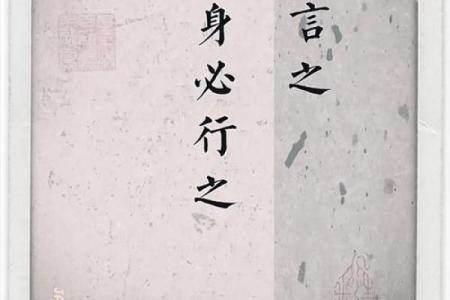 言之
身必行之